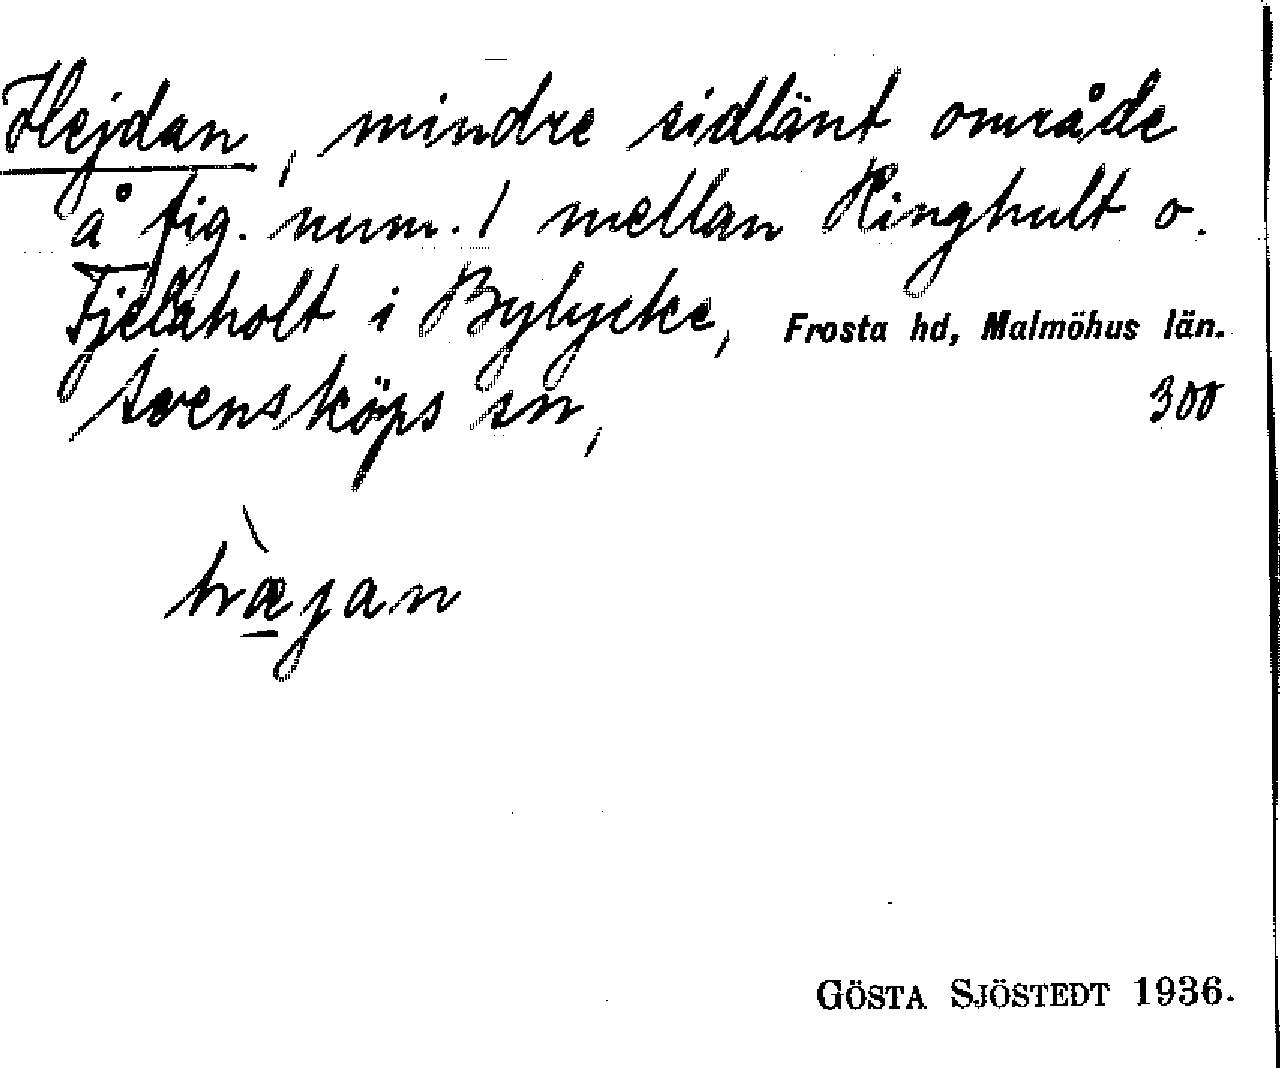 Hejdan, mindre sidlänt område
å fig. num. 1 mellan Ringhult o.
Fjelaholt i Bylycke, Frosta hd, Malmöhus län.
Svensköps sn, 300
hæjan
GÖSTA SJÖSTEDT 1936.